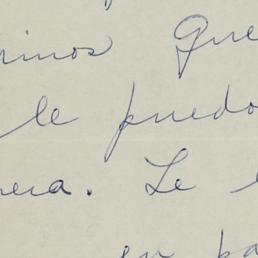 rinos que
le puedo
nera. Le
en pa